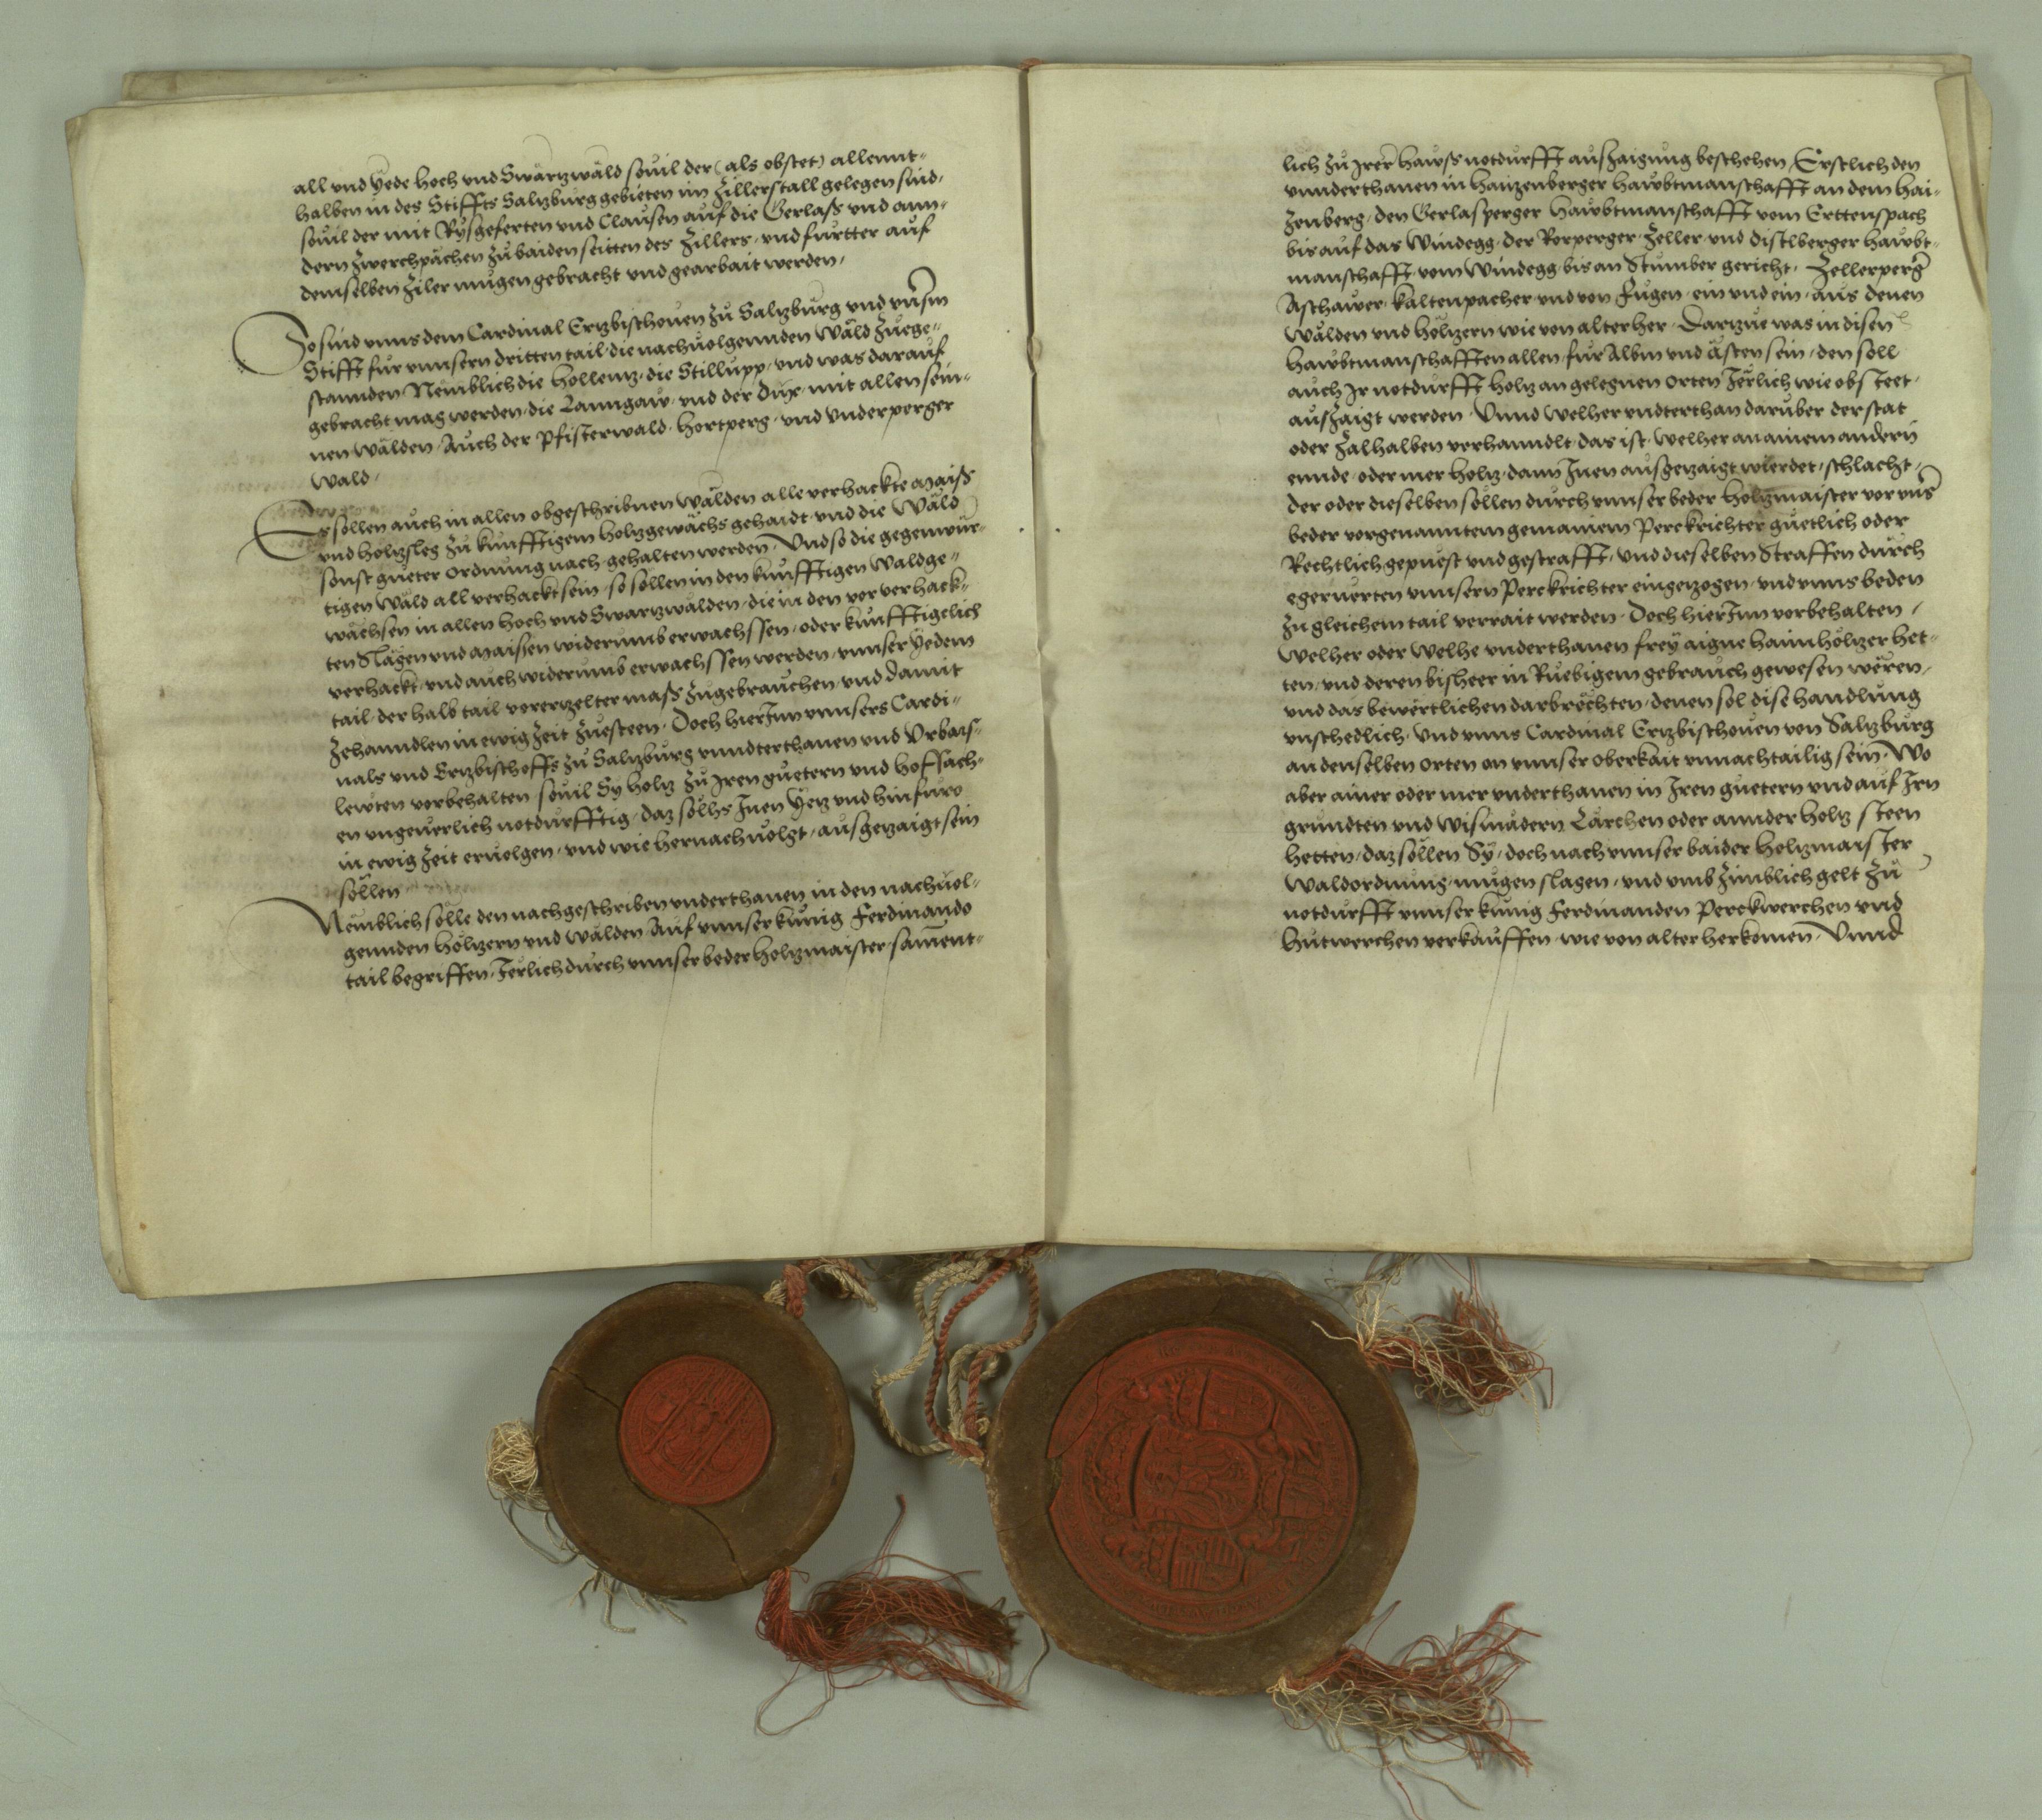 all vnd yede hoch vnd Swärtzwäld souil der (als obstet) allennt-
halben in des Stiffts Saltzburg gebieten im Zillerstall gelegen sind,
souil der mit Rysgeferten vnd Clausen auf die Gerlass vnd ann-
dern Zwerchpächen zu baiden seitten des Zillers, vnd furtter auf
demselben Ziler mugen gebracht vnd gearbait werden,
So sind vnns dem Cardinal Ertzbischouen zu Saltzburg vnd vnsm
Stifft fur vnnsern dritten tail die nachuolgennden Wäld zuege-
stannden Nemblich die Hollentz, die Stillupp, vnd was darauf
gebracht mag werden, die Lanngaw, vnd der Dux, mit allen sein-
nen Wälden, Auch der Pfisterwald, Hortperg, vnd Vnderperger
Wald,
Es sollen auch in allen obgeschribnen Wälden alle verhackte Maiss
vnd Holtzsleg zu kunfftigem holtzgewächs gehaidt vnd die Wäld
sonst gueter ordnung nach gehalten werden, Vnd so die gegenwür-
tigen Wäld all verhackt sein, so sollen in den kunfftigen Waldge-
wächsen in allen Hoch vnd Swartzwälden, die in den vor verhack-
ten Slägen vnd Maisen widerumb erwachssen, oder kunfftigelich
verhackt, vnd auch widerumb erwachssen werden, vnnser yedem
tail der halb tail vorertzelter mass zugebrauchen, vnd damit
zehanndlen in ewig Zeit zuesteen, Doch hierInn vnnsers Cardi-
nals vnd Ertzbischoffs zu Saltzburg vnndterthanen vnd Vrbars-
lewten vorbehalten souil Sy holtz zu Iren guetern vnd hofsach-
en vngeuerlich notdurfftig, daz solhs Inen Yetz vnd hinfuro
in ewig Zeit eruolgen, vnd wie hernach uolgt, ausgetzaigt sein
sollen
Nemblich solle den nachgeschriben vnderthanen in den nachuol-
gennden Höltzern vnd Wälden Auf vnnser kunig Ferdinando
tail begriffen, Jerlich durch vnnser beder holtzmaister sament-
lich zu Irer hawss notdurfft auszaigung beschehen, Erstlich den
vnnderthanen in Haintzenberger Hawbtmanschafft an dem Hai-
zenberg, den Gerlasperger Hawbtmanschafft vom Erttenspach
bis auf das Windegg, der Rorperger, Zeller, vnd Distlberger Hawbt-
manschafft, vom Windegg, bis an Stumber gericht, Zellerperg
Aschawer, Kaltenpacher, vnd von Fugen, ein vnd ein, aus denen
Wälden vnd höltzern wie von alter her, Dartzue was in disen
Hawbtmanschafften allen, fur Albm vnd Ästen sein, den soll
auch Ir notdurfft holtz an gelegnen orten Jerlich wie obsteet,
auszaigt werden, Vnnd welher vndterthan daruber der stat
oder zal halben verhanndlt, das ist, welher an ainem andern
ennde, oder mer holtz, dann Inen ausgetzaigt wierdet, schlacht,
der oder dieselben sollen durch vnnser beder holtzmaister vor vns
beder vorgenanntem gemainem Perckrichter guetlich oder
Rechtlich gepuest vnd gestrafft, vnd dieselben Straffen durch
egeruerten vnnsern Perckrichter eingetzogen, vnd vnns beden
zu gleichem tail verrait werden, Doch hierInn vorbehalten,
Welher oder Welhe vnderthanen frey aigne haimhöltzer het-
ten, vnd deren bisheer in Ruebigem gebrauch gewesen weren,
vnd das bewertlichen darbrechten, denen sol dise handlung
vnschedlich, vnd vnns Cardinal Ertzbischouen von Saltzburg
an denselben orten an vnnser oberkait vnnachtailig sein, Wo
aber ainer oder mer vnderthanen in Iren guetern vnd auf Irn
grundten vnd Wismädern Lärchen oder annder holtz steen
hetten, daz sollen Sy, doch nach vnnser baider holtzmaister
Waldordnung, mugen slagen, vnd vmb zimblich gelt zu
notdurfft vnnser kunig Ferdinanden Perckwerchen vnd
Hutwerchen verkauffen, wie von alter herkomen, Vnnd